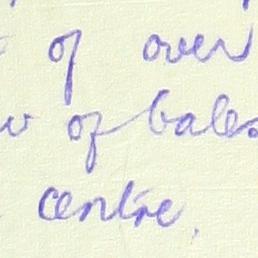 of over
of bales
centre.